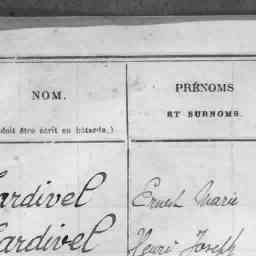 NOM.
PRÉNOMS
ET SURNOMS.
doit être écrit en bâtarde.)
ardivel
Ernest Marie
ardivel
Henri Joseph